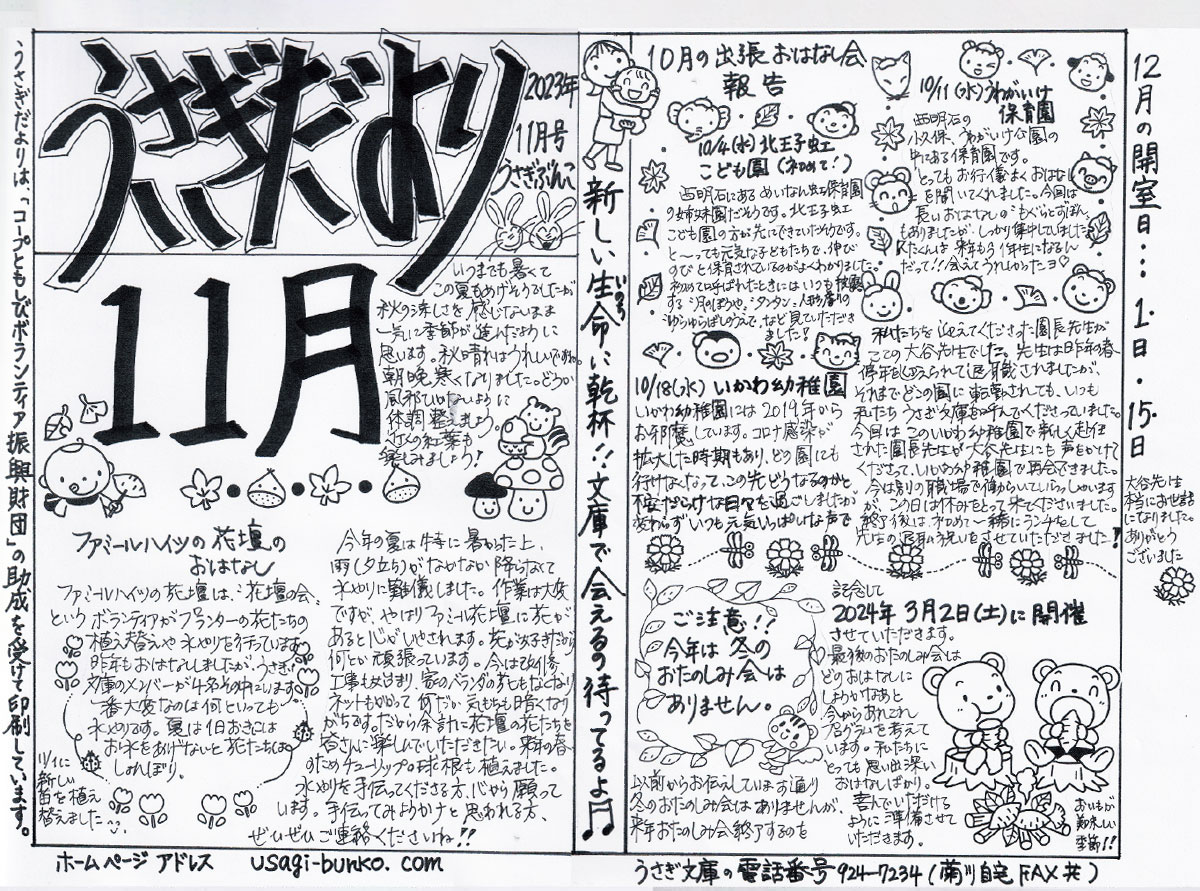 うさぎだよりは、「コープともしびボランティア振興財団」の助成を受けて印刷しています。
うさぎだより
2023年
11月号
うさぎぶんこ
11月
いつまでも暑くて
この夏もめげそうでしたが
秋の涼しさを感じないまま
一気に季節が進んだように
思います。秋晴れはうれしいですね。
朝晩寒くなりました。どうか
風邪ひかないように
体調整えましょう。
近くの紅葉も
楽しみましょう!
ファミールハイツの花壇の
おはなし
ファミールハイツの花壇は、「花壇の会」
というボランティアがプランターの花たちの
植え替えや水やりを行っています。
昨年もおはなししましたが、うさぎ
文庫のメンバーが4名その中にいます。
一番大変なのは何といっても
水やりです。夏は1日おきには
お水をあげないと花たちは
しょんぼり。
11/1に
新しい
苗を植え
替えました
今年の夏は特に暑かった上、
雨(夕立ち)がなかなか降らなくて
水やりに難儀しました。作業は大変
ですが、やはりファミール花壇に花が
あると心がいやされます。花が好きだから
何とか頑張っています。今は改修
工事も始まり、家のベランダの花もなくなり
ネットもかかって何だか気もちも暗くなり
がちです。だから余計に花壇の花たちを
皆さんに楽しんでいただきたい。来年の春
のためチューリップの球根も植えました。
水やりを手伝ってくださる方、心から願って
います。手伝ってみようかと思われる方、
ぜひぜひご連絡くださいね!!
ホームページ アドレス usagi-bunko.com
新しい生命に乾杯!!文庫で会えるの待ってるよ
いのち
10月の出張おはなし会
報告
10/4(水)北王子虹
こども園(初めて!)
西明石にあるめいなん虹保育園
の姉妹園だそうです。北王子虹
こども園の方が先にできていたそうです。
と〜っても元気な子どもたちで、伸び
のびと保育されているのがよくわかりました。
初めて呼ばれたときにはいつも披露
する「月のぼうや」「シタンタン」人形で
ゆらゆらばしのうえで、など見ていただき
ました!
10/11(水)うわがいけ
保育園
西明石の
小久保、うわがいけ公園の
中にある保育園です。
とってもお行儀よくおはなし
を聞いてくれました。今回は
長いおはなしの「もぐらとずぼん」
もありましたが、しっかり集中していました。
Kたくんは来年もう1年生になるん
だって!!会えてうれしかったヨ♡
10/18(水)いかわ幼稚園
いかわ幼稚園には2019年から
お邪魔しています。コロナ感染が
拡大した時期もあり、どの園にも
行けなくなって、この先どうなるのかと
不安だらけな日々を過ごしましたが
変わらずいつも元気いっぱいな声で
私たちを迎えてくださった園長先生が
ここの大谷先生でした。先生は昨年の春、
停年をむかえられて退職されましたが、
それまでどこの園に転勤されても、いつも
私たちうさぎ文庫を呼んでくださっていました。
今回はこのいかわ幼稚園で新しく赴任
された園長先生が大谷先生にも声をかけて
くださって、いかわ幼稚園で再会できました。
今は別の職場で働らいていらっしゃいます
が、この日は休みをとって来てくださいました。
終了後は、初めて一緒にランチをして
先生の退職お祝いをさせていただきました!
ご注意!?
今年は冬の
おたのしみ会は
ありません。
以前からお伝えしています通り
冬のおたのしみ会はありませんが、
来年おたのしみ会終了するのを
記念して
2024年3月2日(土)に開催
させていただきます。
最後のおたのしみ会は
どのおはなしに
しようかなあと
今からあれこれ
えがを考えて
います。私たちに
とっても思い出深い
おはなしばかり。
喜んでいただける
ように準備させて
いただきます。
おいもが
美味しい
季節!!
うさぎ文庫の電話番号924-7234(菊川自宅FAX共)
12月の開室日…1日・15日
大谷先生
本当にお世話
になりました。
ありがとう
ございました